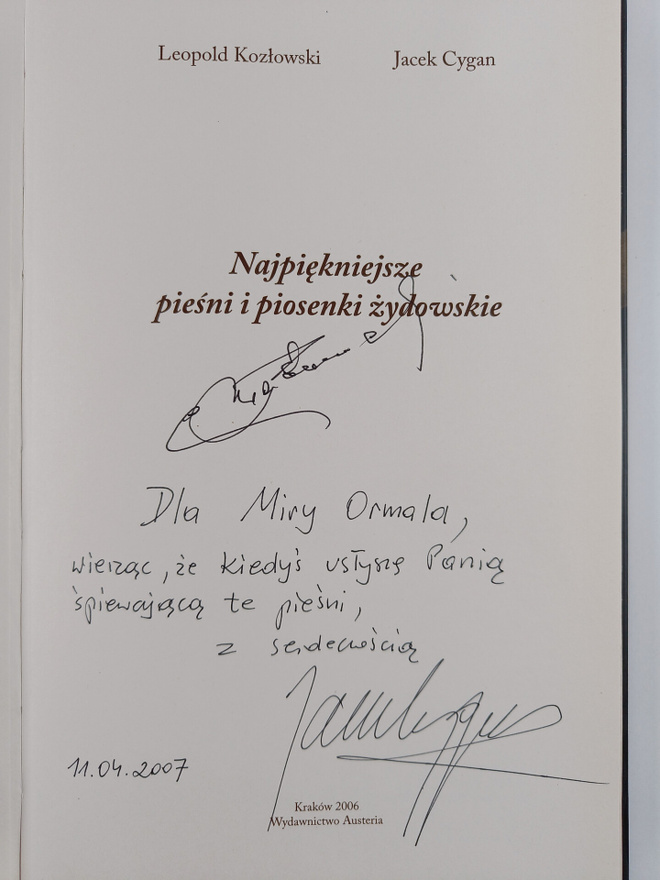 Leopold Kozłowski Jacek Cygan
Najpiękniejsze
pieśni i piosenki żydowskie
Dla Miry Ormala,
wierząc, że kiedyś usłyszę Panią
śpiewającą te pieśni,
z serdecznością
Jacek Cygan
11.04.2007
Kraków 2006
Wydawnictwo Austeria